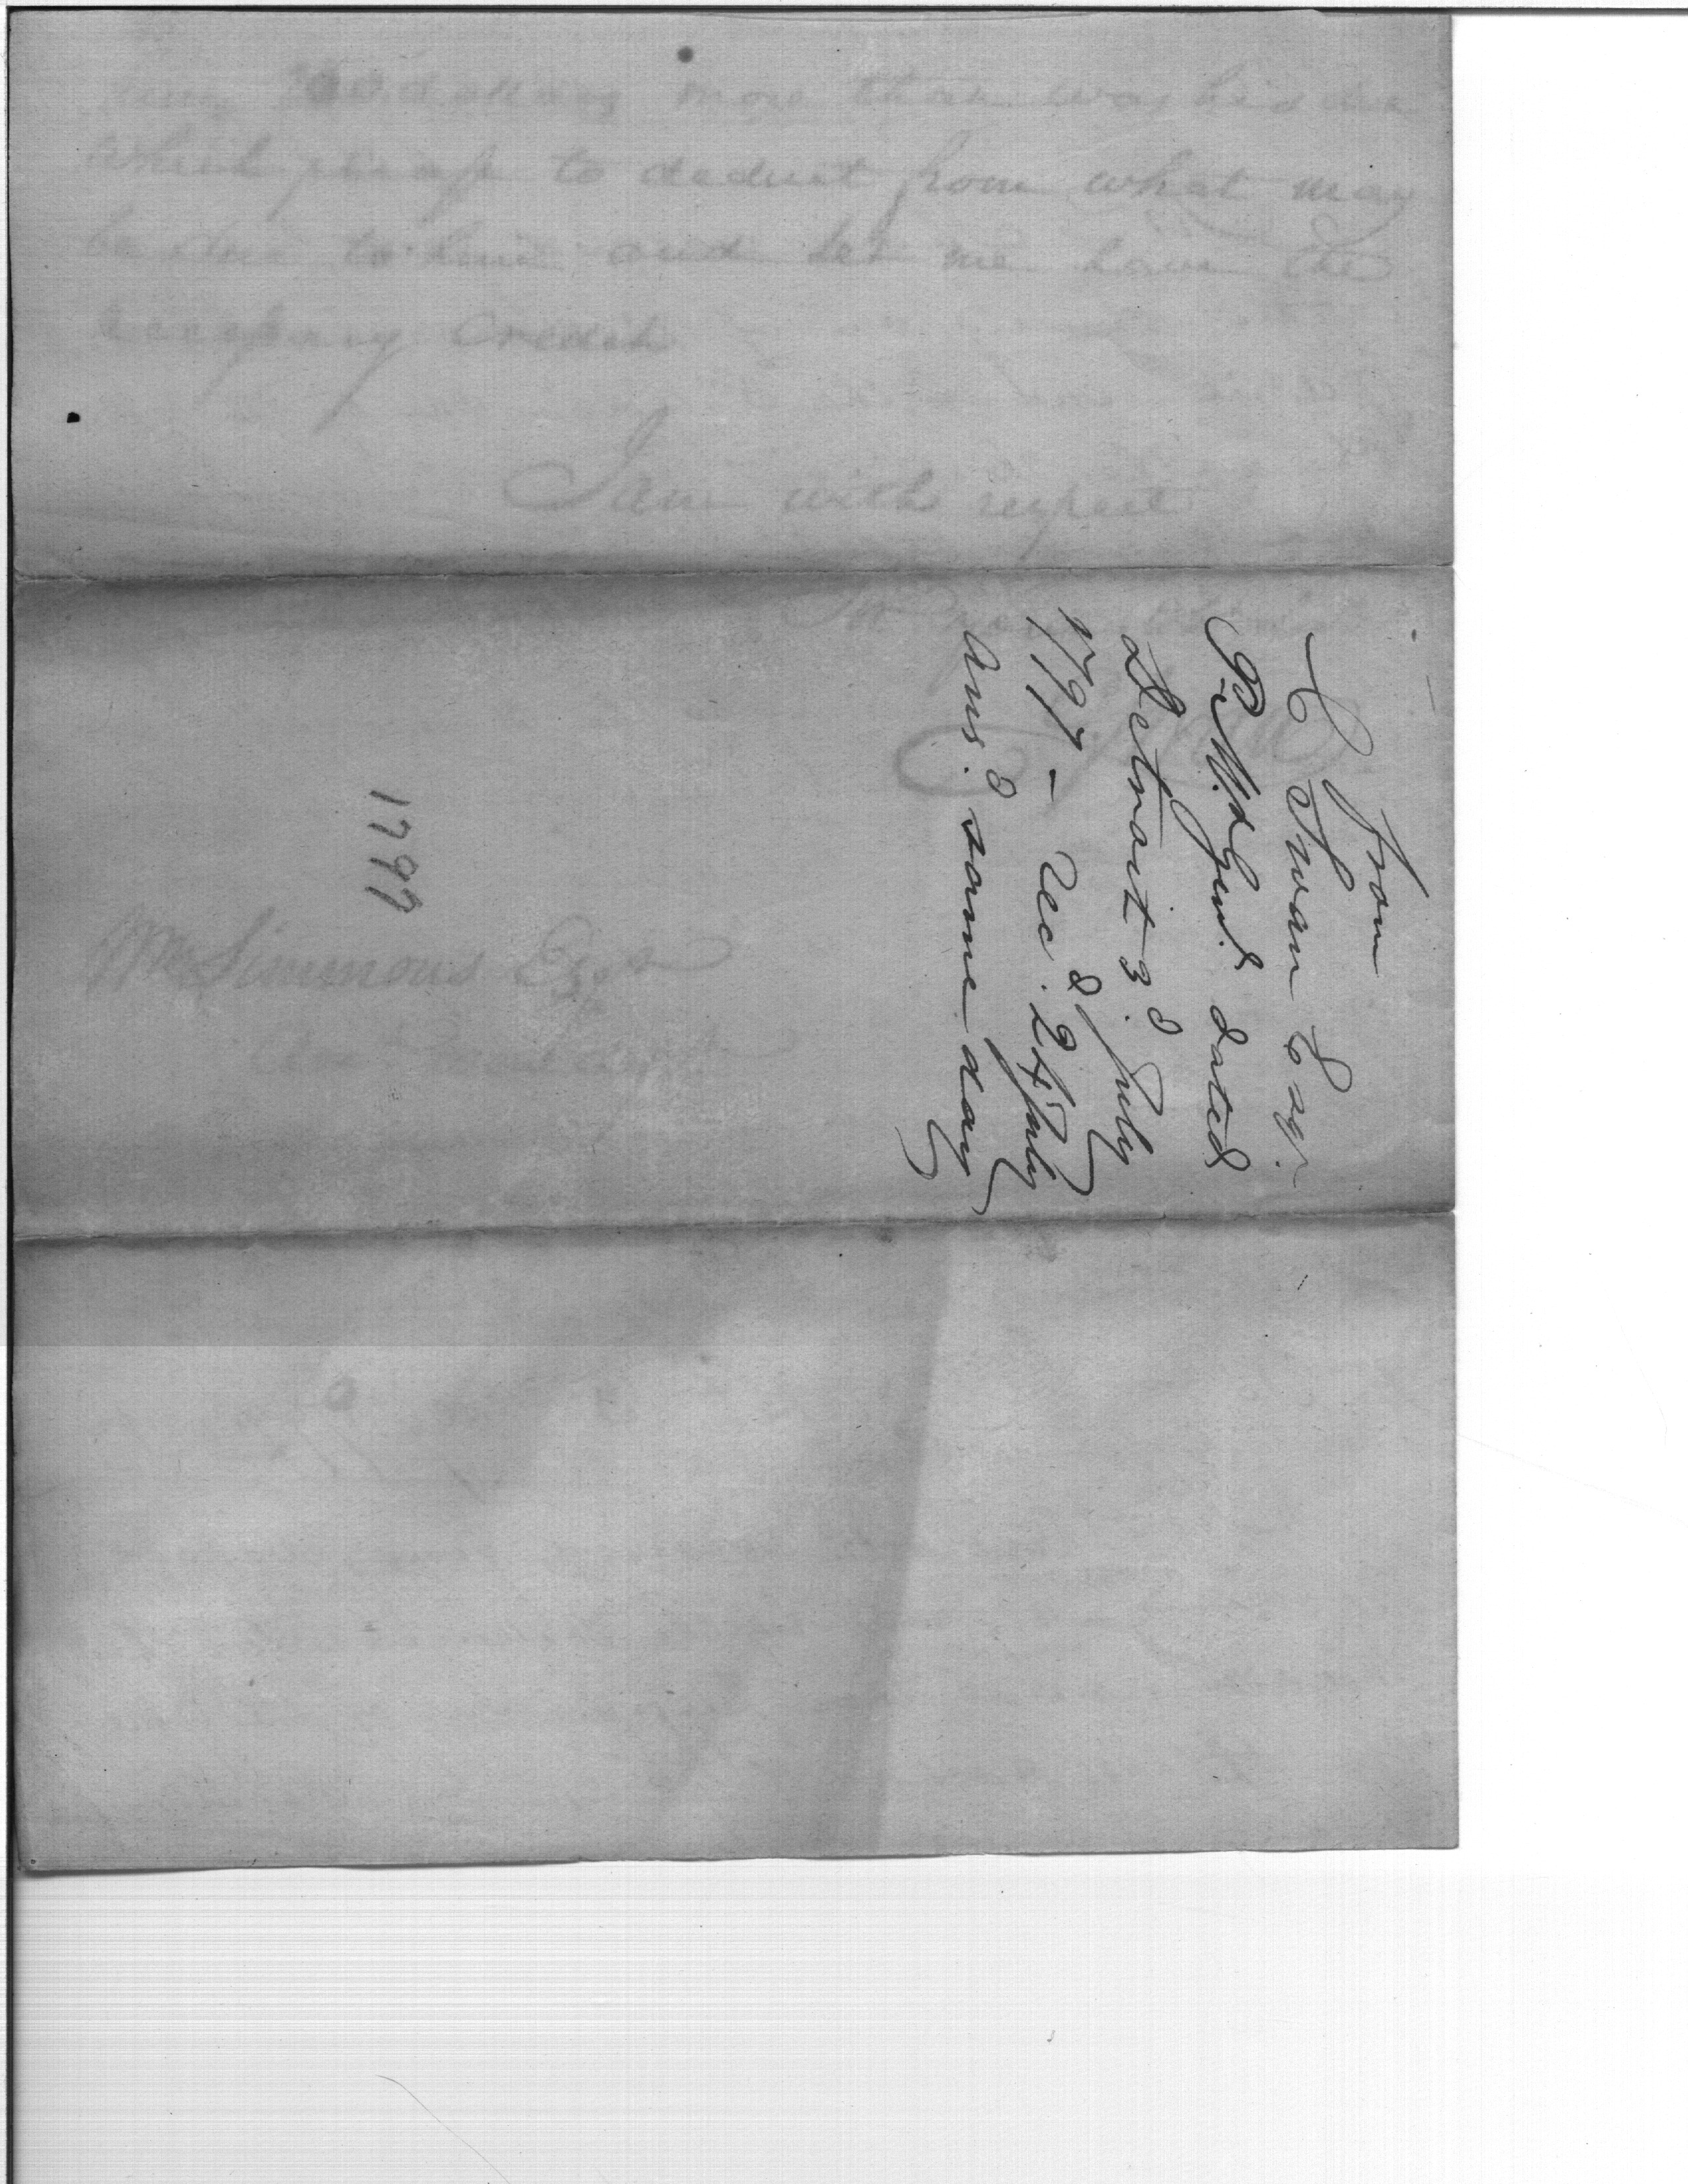 more than was his due
which please to deduct from what may
be due to him and let me have the
Credit
I am with respect
Wm Simmons Esqr
from
C Swan Esqr.
P. M. Genl. dated
Detroit 3d. July
1797 - Recd. 24 July
Ansd. same day
1797